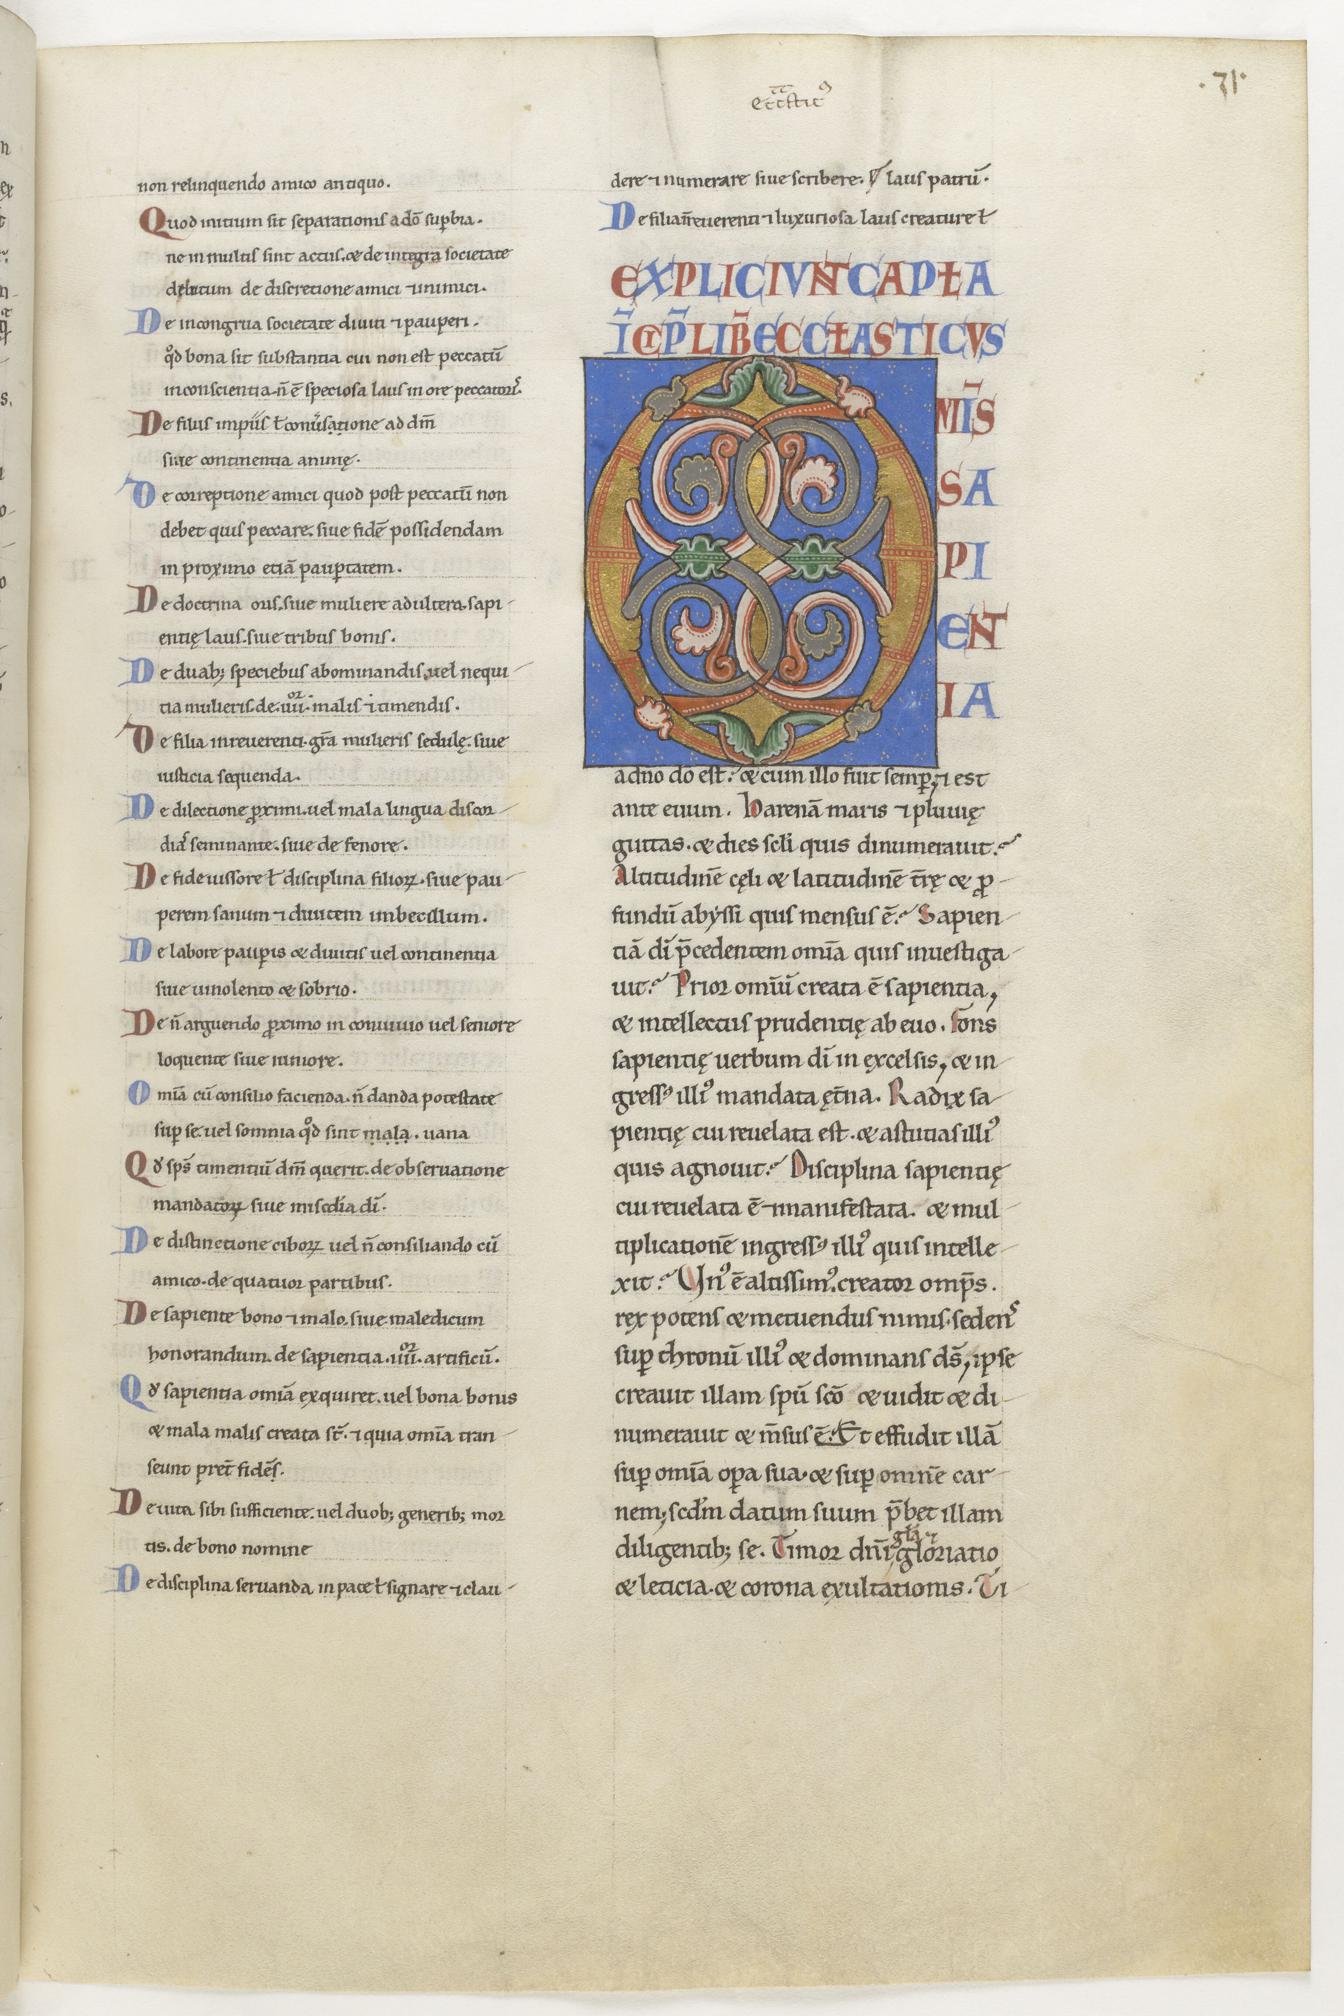 eccstic᷒
·71·
non relinquendo amico antiquo.
Quod initium sit separationis a dō supbia.
ne in multis sint actus. & de integra societate
debitum de discretione amici ⁊ inimici.
De incongrua societate diuiti ⁊ pauperi.
qd̊ bona sit substantia cui non est peccatū
in conscientia. n̄ ē speciosa laus in ore peccatoris.
De filiis impiis ł conuersatione ad dm̄
siue continentia animę.
De correptione amici quod post peccatū non
debet quis peccare. siue fidē possidendam
in proximo etiā paupertatem.
De doctrina oris. siue muliere adultera. sapi-
entię laus. siue tribus bonis.
De duab; speciebus abominandis. uel nequi-
tia mulieris. de .iiii. or malis ⁊ timendis.
De filia inreuerenti. gr̄a mulieris sedulę. siue
iusticia sequenda.
De dilectione proximi. uel mala lingua discor-
dias seminante. siue de fenore.
De fideiussore ł disciplina filioꝝ. siue pau-
perem sanum ⁊ diuitem imbecillum.
De labore pauperis & diuitis uel continentia
siue uinolento & sobrio.
De n̄ arguendo proximo in conuiuio uel seniore
loquente siue minore.
Omīa cū consilio facienda. n̄ danda potestate
sup se. uel somnia qd̊ sint mala. uana
Qđ sp̄s timentiū dm̄ querit. de obseruatione
mandatoꝝ siue misc̄dia dī.
De distinctione ciboꝝ uel n̄ consiliando cū
amico. de quatuor partibus.
De sapiente bono ⁊ malo. siue maledicum
honorandum. de sapientia .iiii. or artificū.
Qđ sapientia omīa exquiret. uel bona bonis
& mala malis creata st̄. ⁊ quia omīa tran-
seunt pret̄ fidēs.
De uita sibi sufficiente. uel duob; generib; mor
tis. de bono nomine
De disciplina seruanda in pace ł signare ⁊ clau-
dere ⁊ numerare siue scribere. ł laus patrū.
De filia irreuerenti ⁊ luxuriosa laus creature ł
EXPLICIVNT CAPŁA
ĪCIP̄ LIB̄ ECCŁASTICVS
OM̄IS
SA
PI
EN
IA
a dn̄o dō est. & cum illo fuit semp; ⁊ est
ante euum. Harenā maris ⁊ pluuię
guttas. & dies scłi quis dinumerauit.
Altitudinē cęli & latitudinē t̄rę & ꝓ-
fundū abyssi quis mensus ē. Sapien-
tiā dī p̄cedentem omīa quis inuestiga-
uit. Prior omīū creata ē sapientia,
& intellectus prudentię ab euo. Fons
sapientię uerbum dī in excelsis, & in-
gress᷒ illi᷒ mandata ęt̄na. Radix sa-
pientię cui reuelata est. & astutias illi᷒
quis agnouit. Disciplina sapientię
cui reuelata ē ⁊ manifestata. & mul-
tiplicationē ingress᷒ illi᷒ quis intelle-
xit. Vn᷒ ē altissim᷒. creator omp̄s.
rex potens & metuendus nimis. sedens
sup thronū illi᷒ & dominans ds̄, ipse
creauit illam spū scō & uidit & di-
numerauit & m̄sus ē. Et effudit illā
sup omīa opa sua. & sup omnē car-
nem; scdm̄ datum suum p̄bet illam
diligentib; se. Timor dn̄i gła ⁊ gloriatio
& leticia. & corona exultationis. Ti-